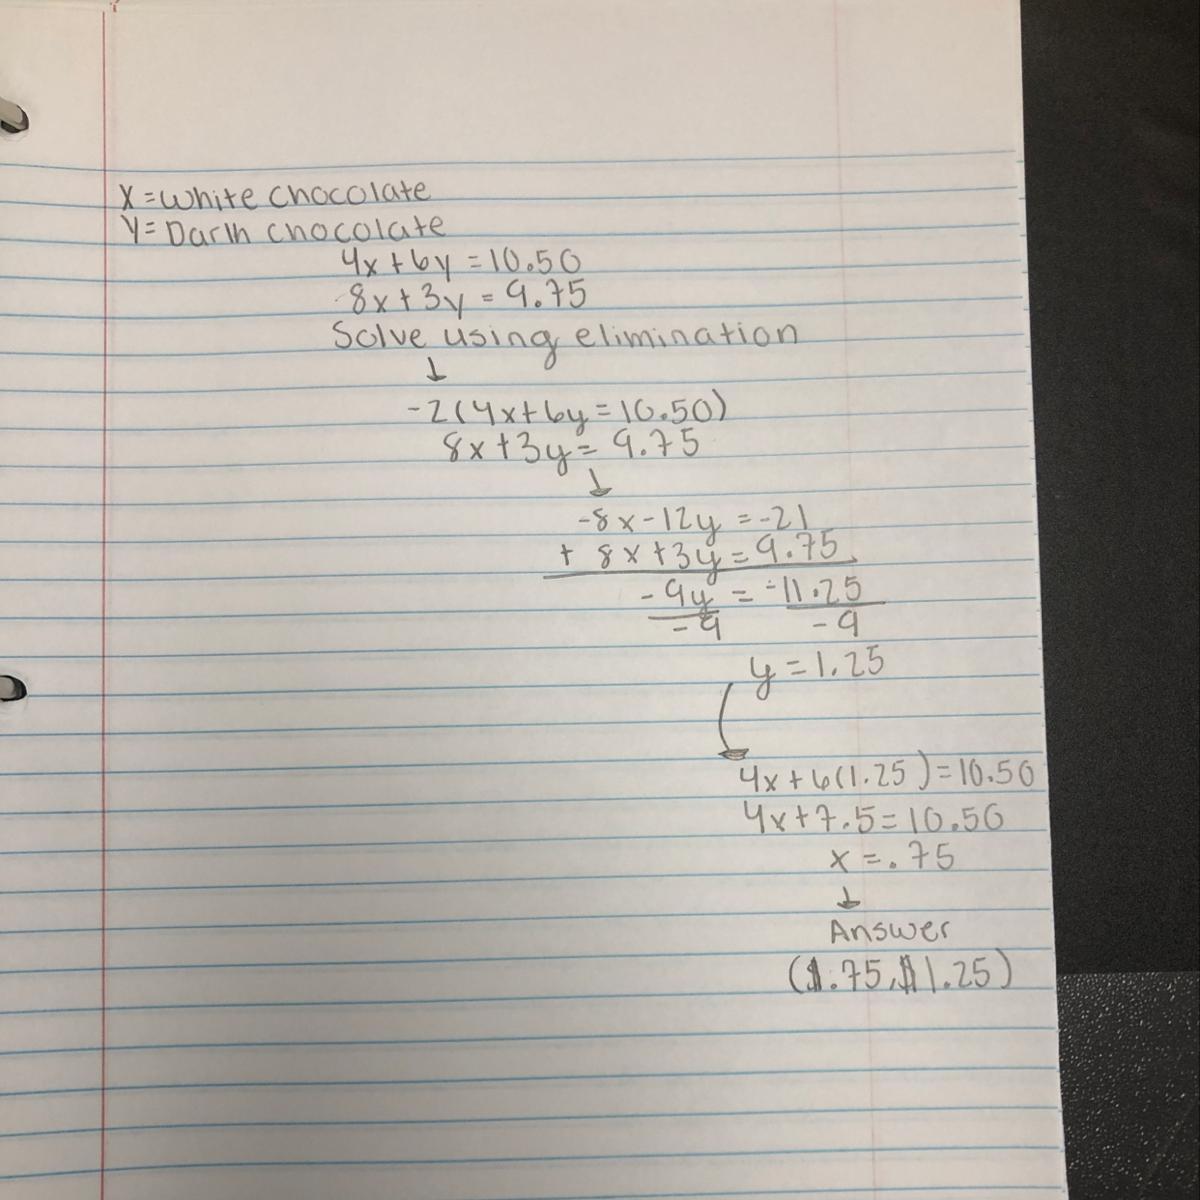 X=White chocolate
Y=Dark chocolate
4x+6y=10.50
8x+3y=9.75
Solve using elimination
↓
-2(4x+6y=10.50)
8x+3y=9.75
↓
-8x-12y=-21
+ 8x+3y=9.75
-9y = -11.25
-9 -9
y=1.25
4x+6(1.25)=10.50
4x+7.5=10.50
x=.75
↓
Answer
($.75,$1.25)